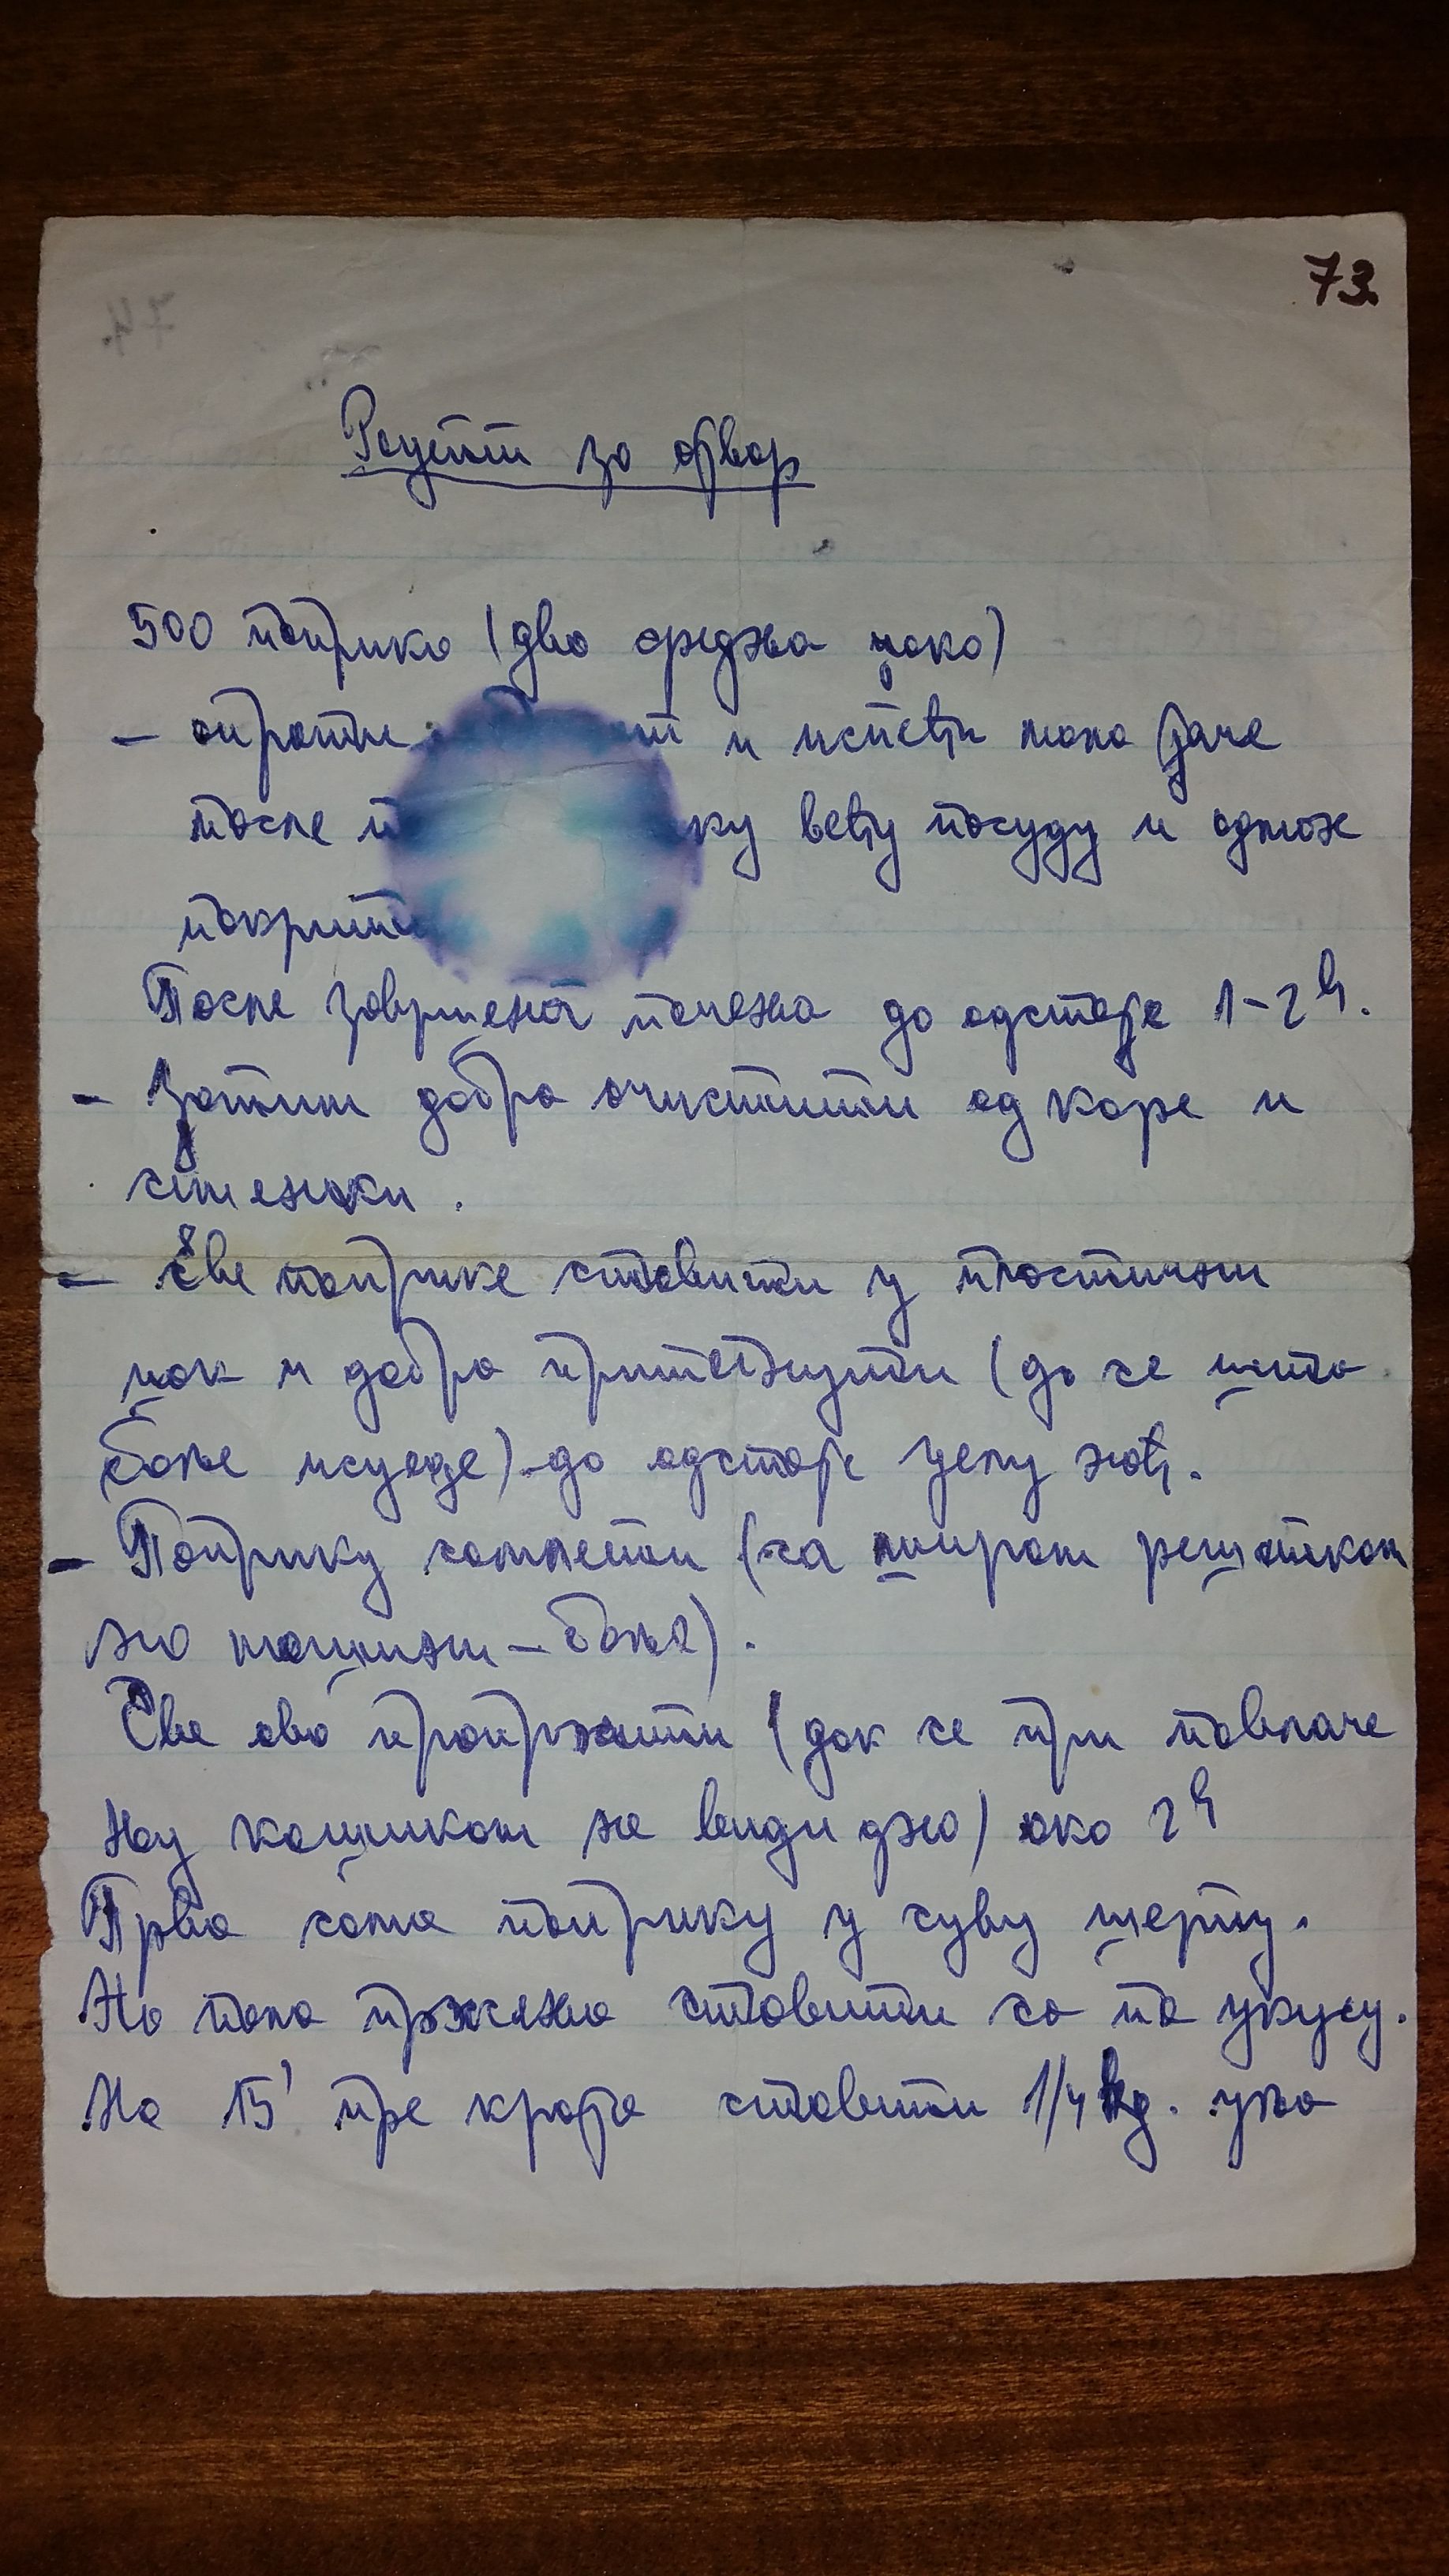 73.
Рецепт за ајвар
500 паприка (два средња џака)
– опрати и испећи мало јаче
после већу посуду и одмах
После завршеног печења да одстоје 1-2 h.
– Затим добро очистити од коре и
семенки.
– Све паприке ставити у пластични
џак и добро притегнути (да се што
боље исцеде) да одстоје целу ноћ.
– Паприку самлети (са широм решетком
на машини – боља).
Све ово пропржити (док се при повлаче
њу кашиком не види дно) око 2 h
Прво сама паприку у суву шерпу.
На пола пржења ставити со по укусу.
На 15' пре краја ставити 1/4 kg. уља